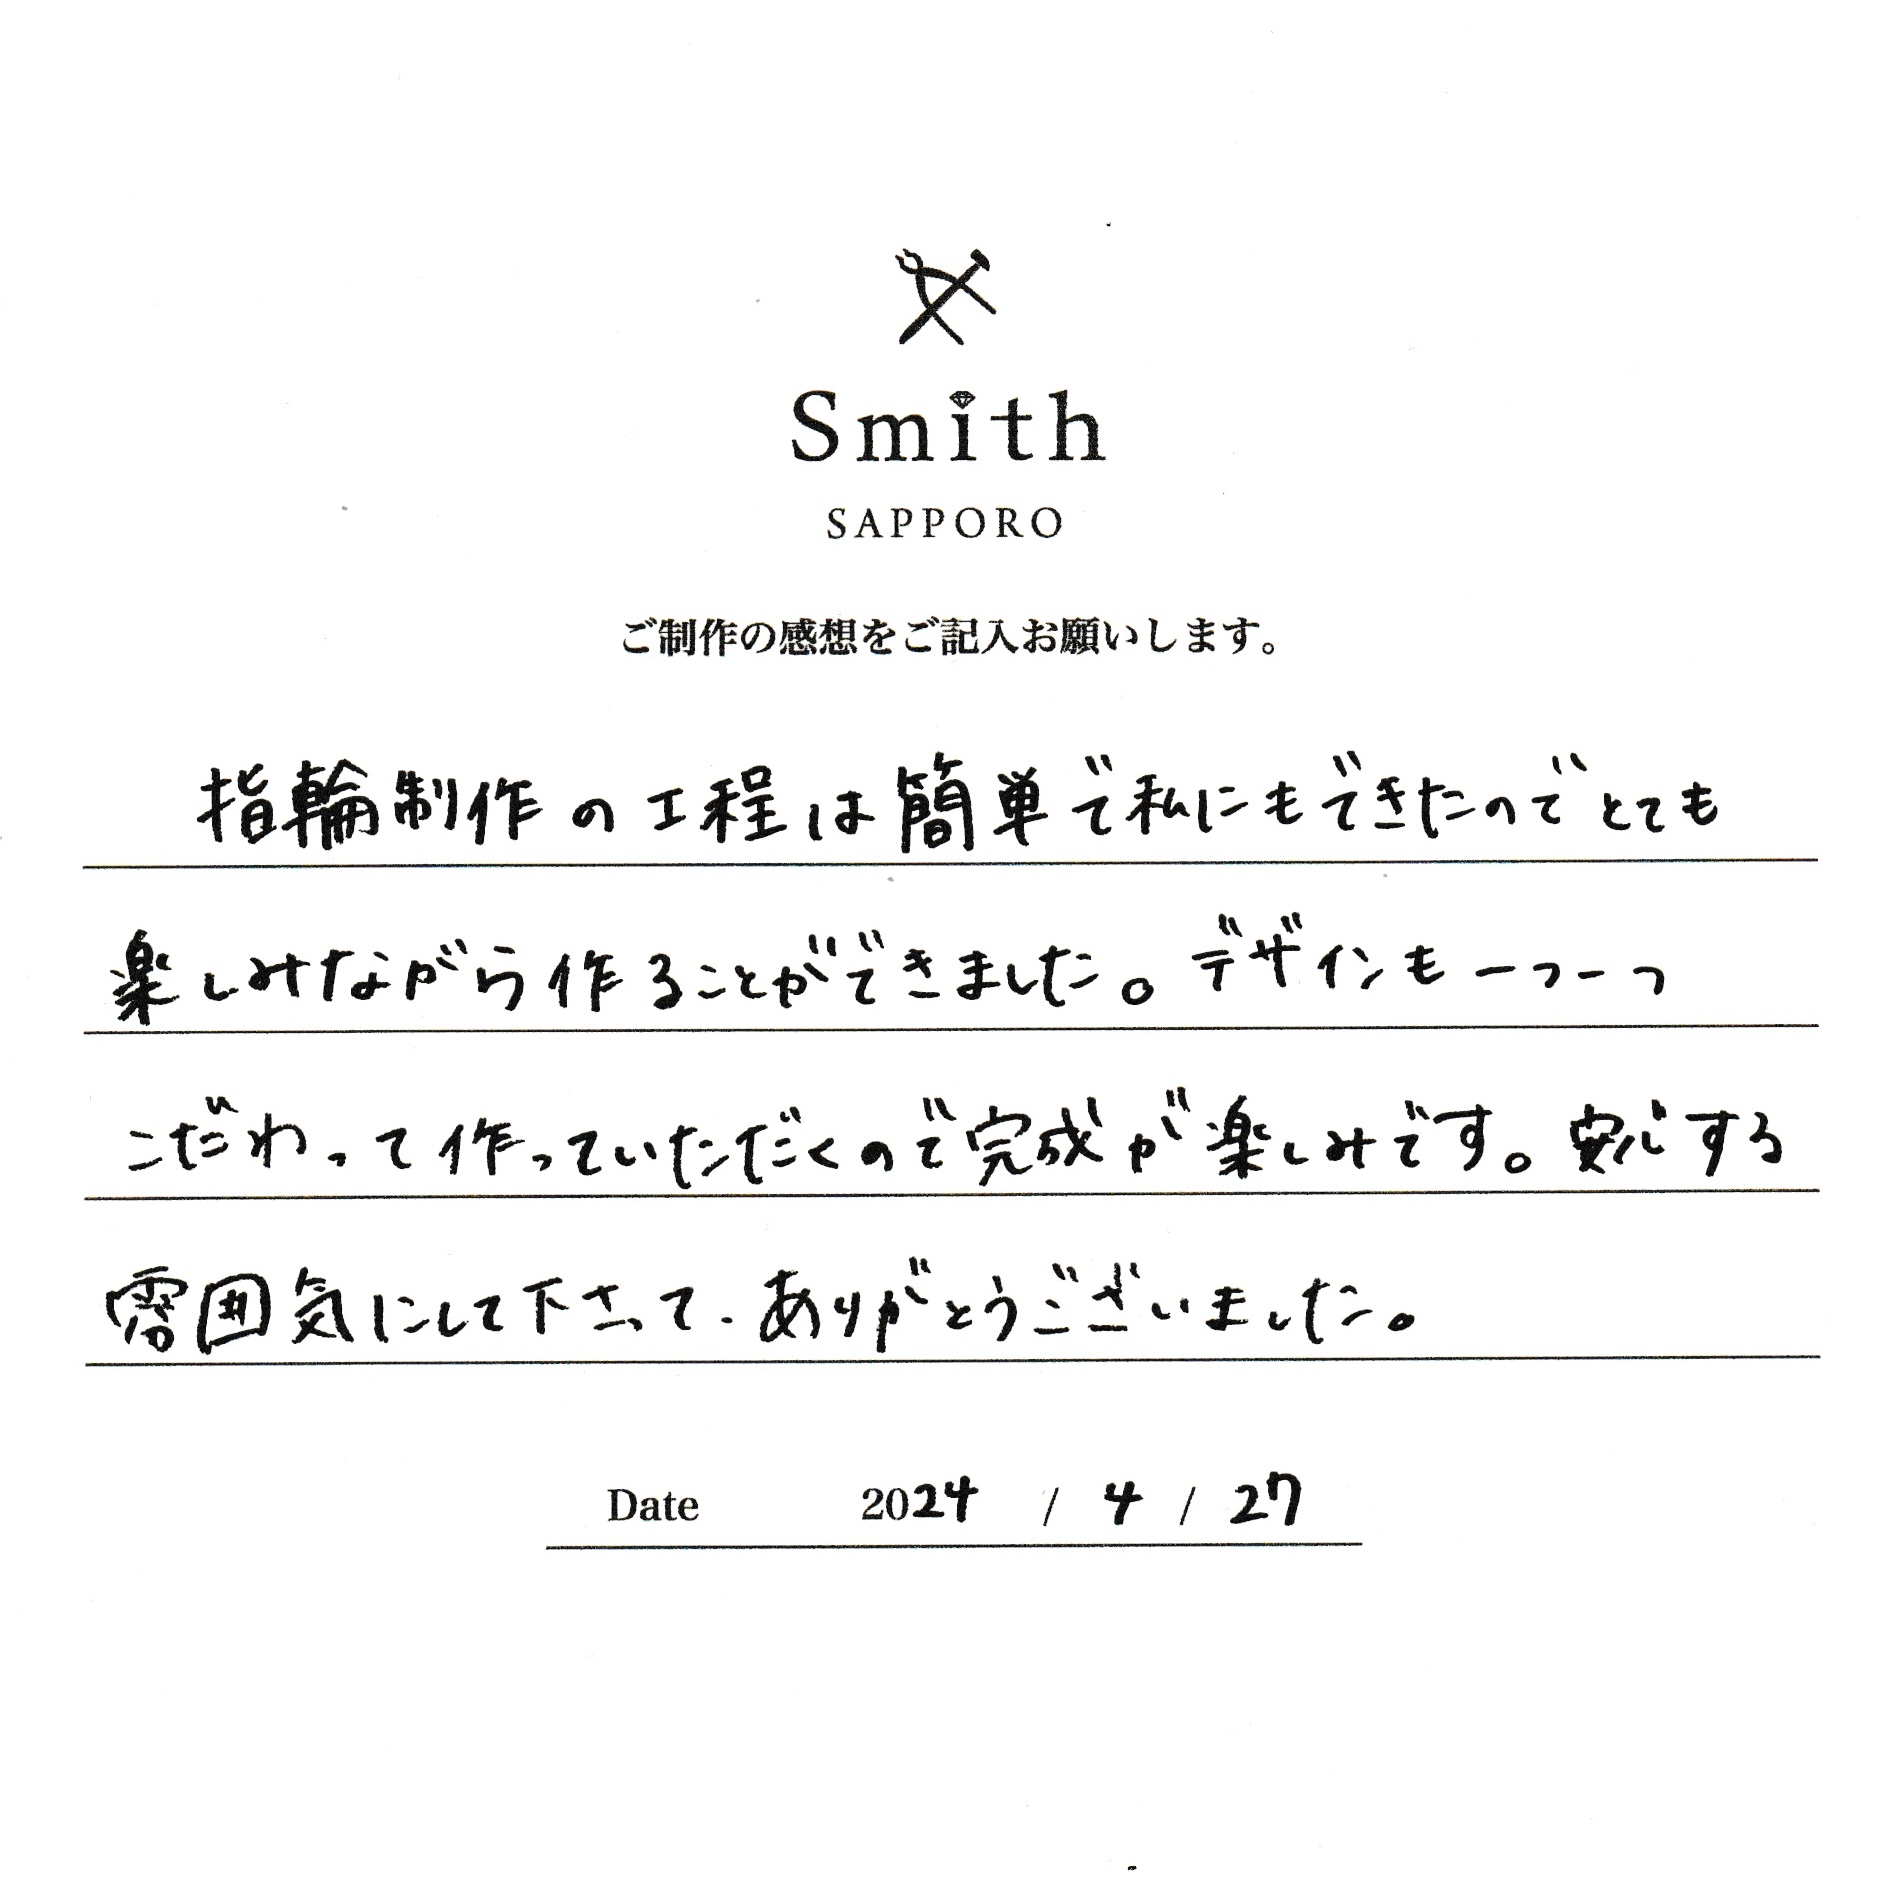 Smith
SAPPORO
ご制作の感想をご記入お願いします。
指輪制作の工程は簡単で私にもできたのでとても
楽しみながら作ることができました。デザインも一つ一つ
こだわって作っていただくので完成が楽しみです。安心する
雰囲気にして下さって、ありがとうございました。
Date 2024 / 4 / 27